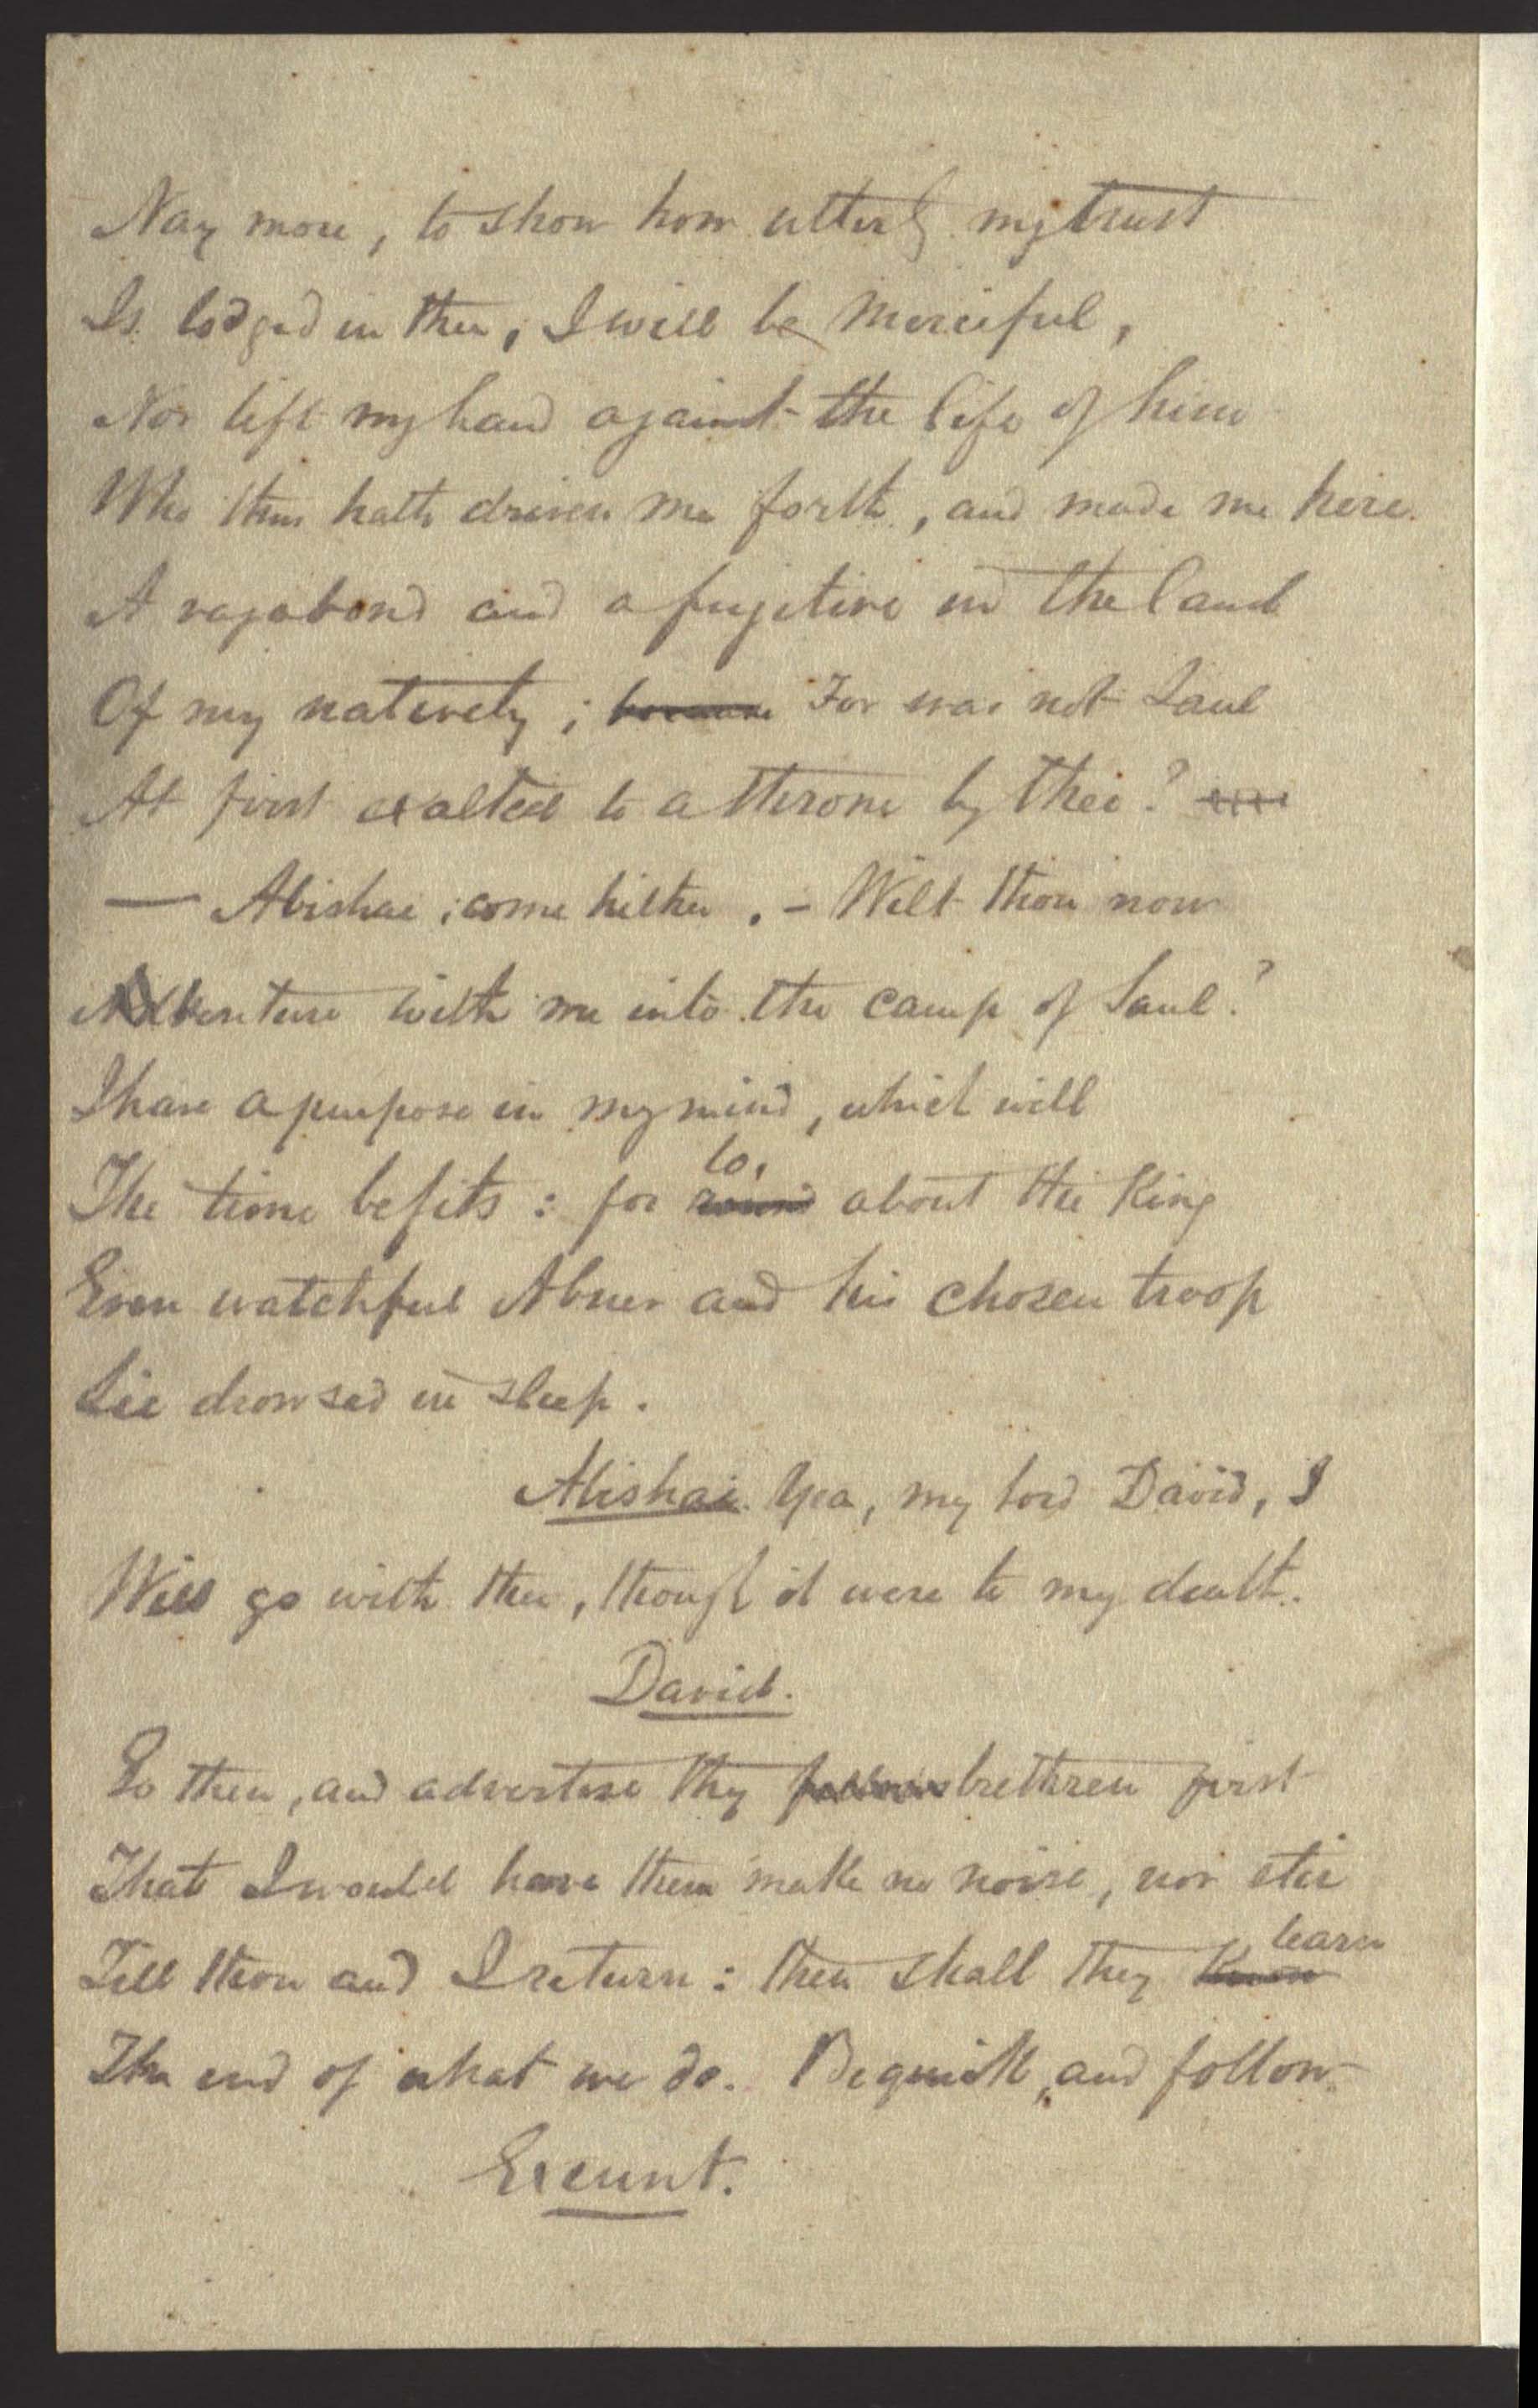 Nay more, to show how utterly my trust
Is lodged in thee, I will be merciful,
Nor lift my hand against the life of him
Who thus hath driven me forth, and made me here
A vagabond and a fugitive in the land
Of my nativity; because For was not Saul
At first exalted to a throne by thee?
— Abishai, come hither. – Wilt thou now
Adventure with me into the camp of Saul?
I have a purpose in my mind, which well
lo,
The time befits: for round about the King
Even watchful Abner and his chosen troop
Lie drowsed in sleep.
Abishai. Yea, my lord David, I
Will go with thee, though it were to my death.
David.
Go then, and advertise thy fellows brethren first
That I would have them make no noise, nor stir
learn
Till thou and I return: then shall they know
The end of what we do. Be quick, and follow.
Exeunt.